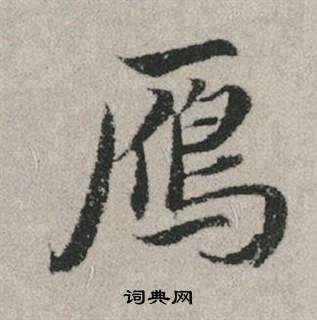 鴈
词典网